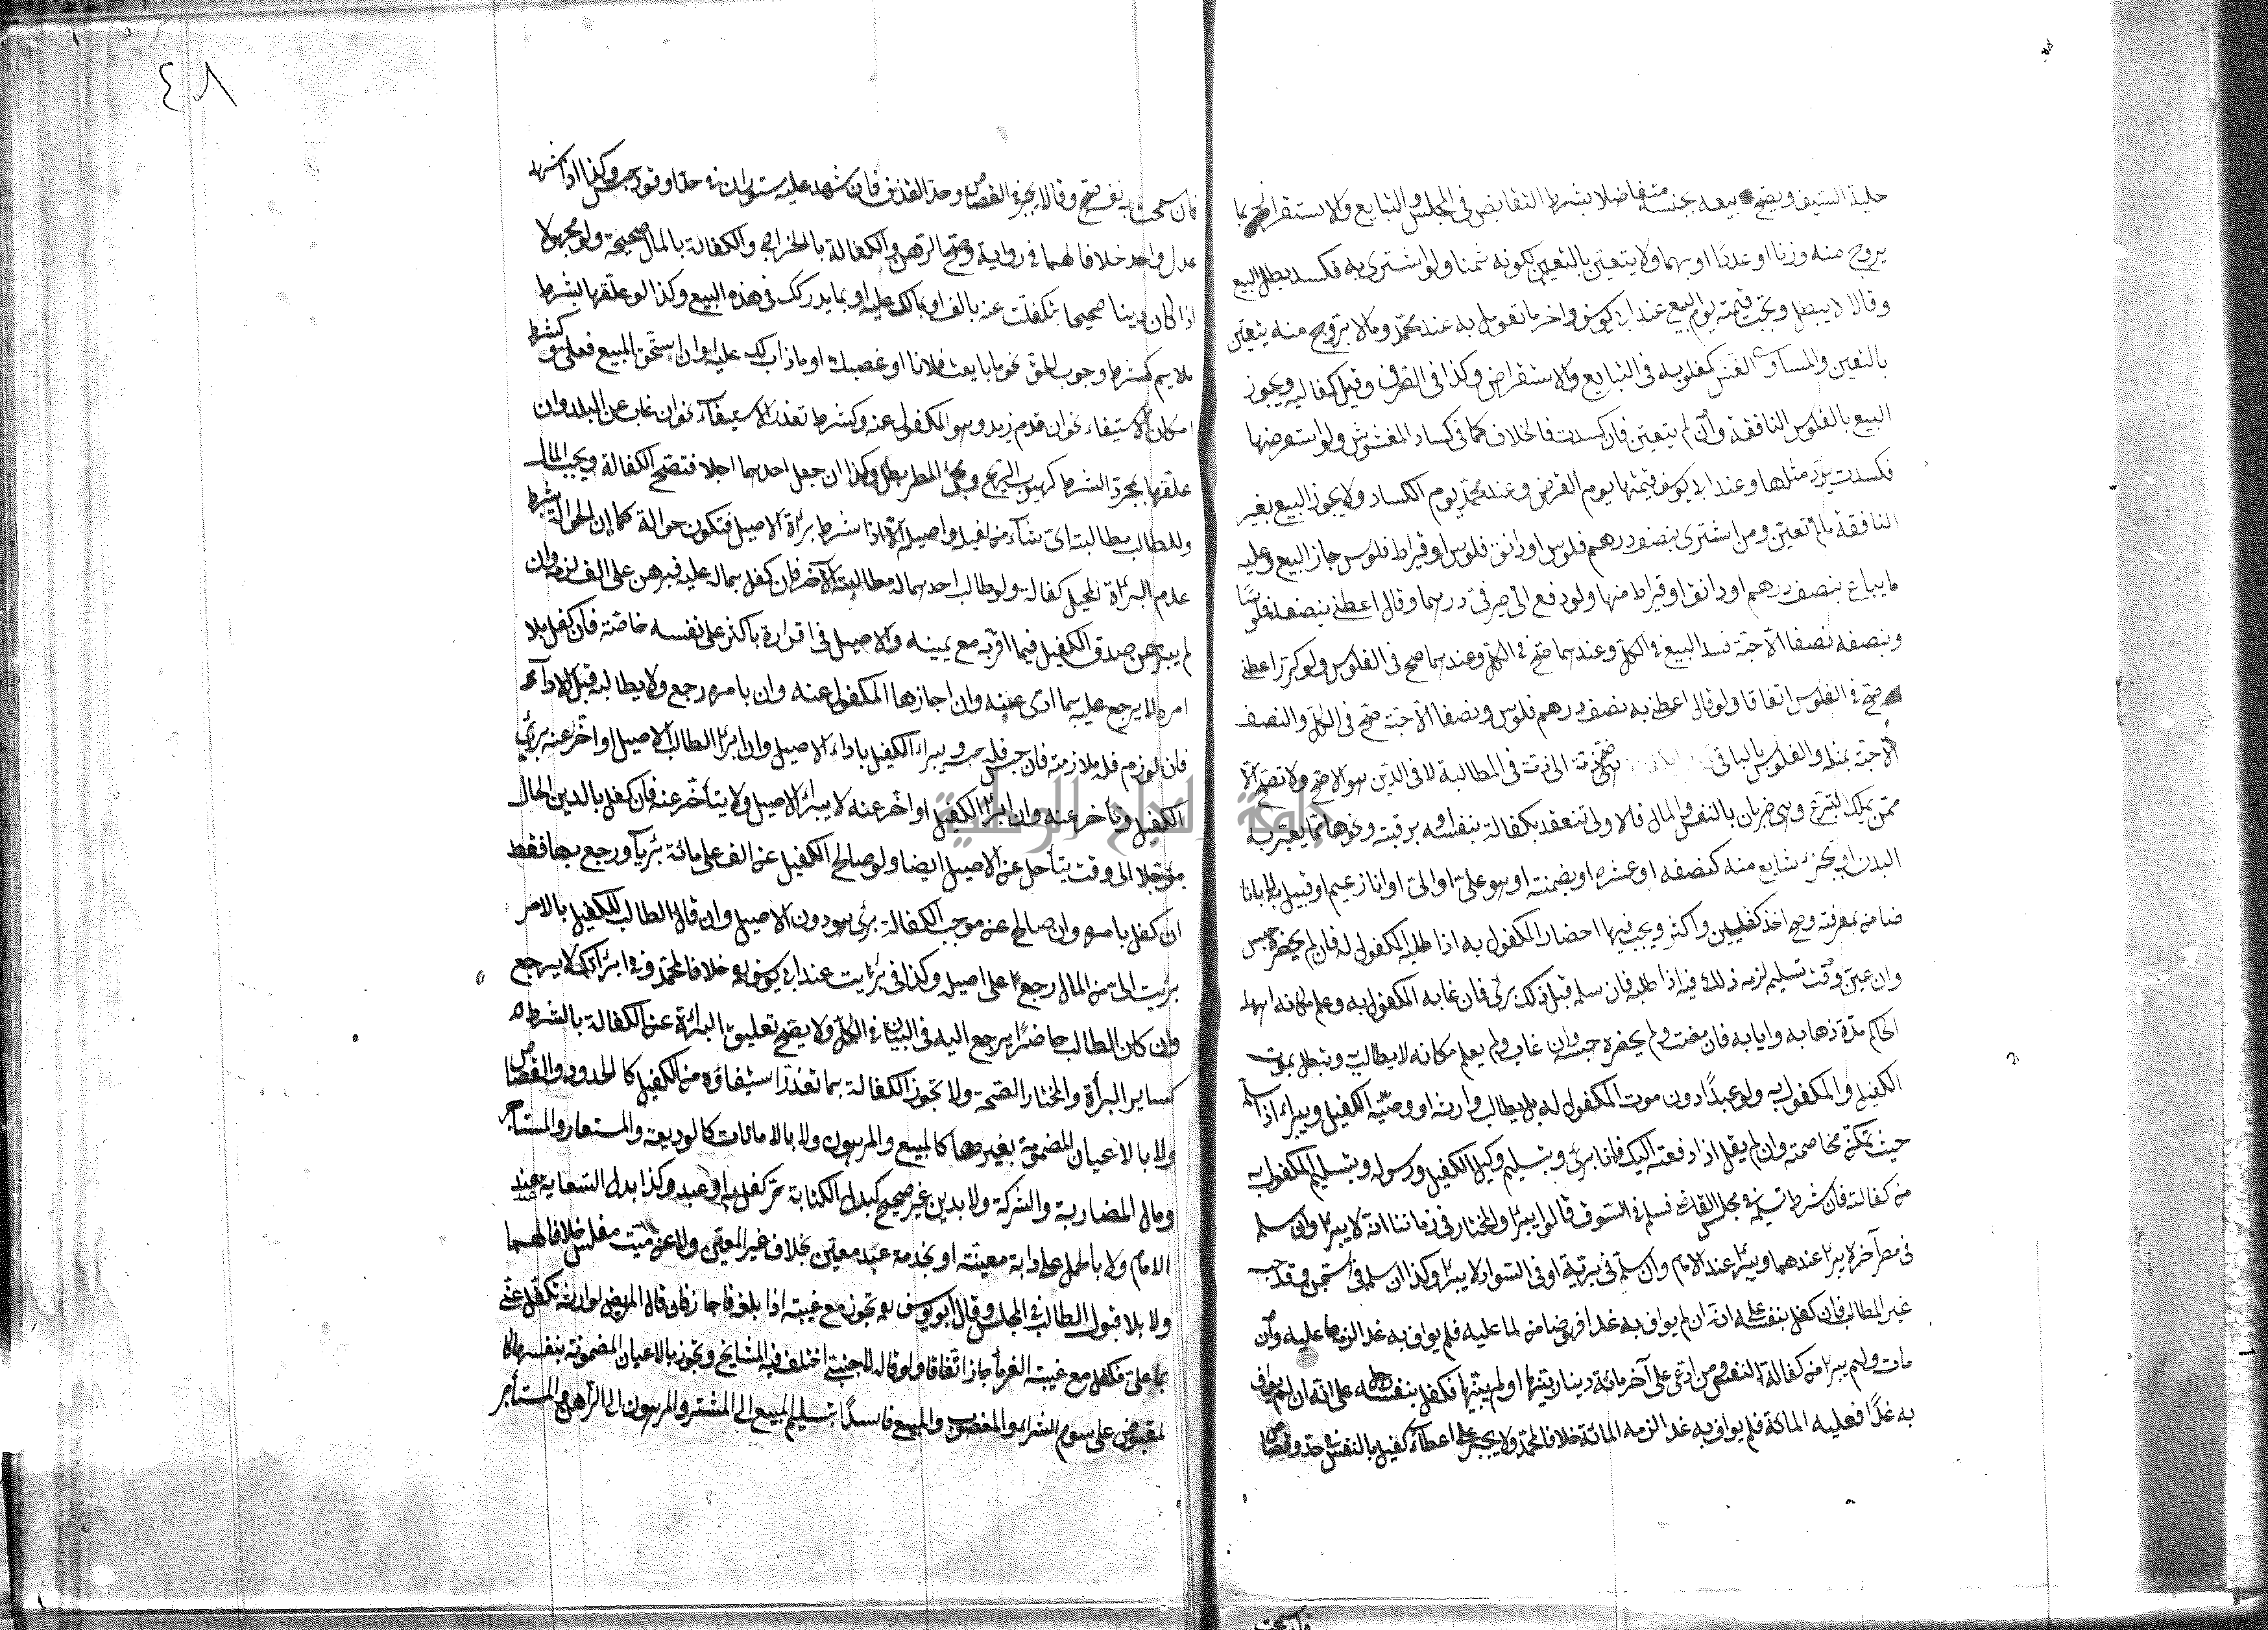 حلية السيف ويصح بيعه بجنسه متفاضلا بشرط التقابض في المجلس والتبايع والاستقراض بما
يروج منه وزنا او عددا او بهما ولا يتعين بالتعيين لكونه ثمنا ولو اشترى به فكسد بطل البيع
وقالا لا يبطل وتجب قيمته يوم البيع عند ابي يوسف واخر ما تعومل به عند محمد وما لا يروج منه يتعين
بالتعيين والمساوي الغش كمغلوبه في التبايع والاستقراض وكذا في الصرف وقيل كغالبه ويجوز
البيع بالفلوس النافقة وان لم يتعين فان كسدت فالخلاف كما في كساد المغشوش ولو استقرضها
فكسدت يرد مثلها وعند ابي يوسف قيمتها يوم القرض وعند محمد يوم الكساد ولا يجوز البيع بغير
النافقة مالم تعين ومن اشترى بنصف درهم فلوس او دانق فلوس او قيراط فلوس جاز البيع وعليه
ما يباع بنصف درهم او دانق او قيراط منها ولو دفع الى صيرفي درهما وقال اعطني بنصفه فلوسا
وبنصفه نصفا الا حبة فسد البيع في الكل وعندهما صح في الفلوس ولو كرر اعطني
صح في الفلوس اتفاقا ولو قال اعطني به نصف درهم فلوس ونصفا الا حبة صح في الكل والنصف
الا حبة بمثله والفلوس بالباقي ضم ذمة الى ذمة في المطالبة لا في الدين هو الاصح ولا تصح الا
ممن يملك التبرع وهي ضربان بالنفس والمال فالاولى تنعقد بكفالة بنفسه وبرقبته ونحوها مما يعبر به
البدن او بجزء شايع منه كنصفه او عشره او بضمنته او هو علي او الي او انا زعيم او قبيل به لا بانا
ضامن بمعرفته وصح اخذ كفيلين واكثر ويجب فيها احضار المكفول به اذا طلبه المكفول له فان لم يحضره حبس
وان عين وقت تسليمه لزمه ذلك فيه اذا طلبه فان سلمه قبل ذلك برئ فان غاب المكفول به وعلم مكانه امهله
الحاكم مدة ذهابه وايابه فان مضت ولم يحضره حبسه وان غاب ولم يعلم مكانه لا يطالب وتبطل بموت
الكفيل والمكفول به ولو عبدا دون موت المكفول له بل يطالب وارثه او وصيه الكفيل ويبراء اذا سلمه
حيث تمكنه مخاصمته وان لم يقل اذا دفعته اليك فانا برئ وبتسليم وكيل الكفيل ورسوله وبتسليم المكفول به
من كفالته فان شرط تسليمه في مجلس القاضي فسلمه في السوق قالوا يبرا والمختار في زماننا انه لا يبرا وان سلمه
في مصر آخر لا يبرا عندهما ويبرا عند الامام وان سلمه في برية او في السواد لا يبرا وكذا ان سلمه في السجن وقد حبسه
غير الطالب فان كفل بنفسه على انه ان لم يواف به غدا فهو ضامن لما عليه فلم يواف به غدا لزمه ما عليه وان
مات ولم يبرا من كفالة النفس ومن ادعى على آخر مائة دينار بينها او لم يبينها فكفل بنفسه رجل على انه ان لم يواف
به غدا فعليه المائة فلم يواف به غدا لزمه المائة خلافا لمحمد ولا يجبر على اعطاء كفيل بالنفس في حد وقصاص
فان سمحت
٤٨
فان سمحت به نفسه صح وقالا يجبر في القصاص وحد القذف فان شهد عليه مستوران في حد او قود حبس وكذا اذا شهد
عدل واحد خلافا لهما في رواية وصح الرهن والكفالة بالخراج والكفالة بالمال صحيحة ولو مجهولا
اذا كان دينا صحيحا بتكفلت عنه بالف او بمالك عليه او بما يدركك في هذه البيع وكذا لو علقها بشرط
ملايم كشرط وجوب الحق نحو ما بايعت فلانا او غصبك او ما ذاب لك عليه او ان استحق المبيع فعلي وكشرط
امكان الاستيفاء نحو ان قدم زيد وهو المكفول عنه وكشرط تعذر الاستيفاء نحو ان غاب عن البلد وان
علقها بمجرد الشرط كهبوب الريح ومجئ المطر بطل وكذا ان جعل احدهما اجلا فتصح الكفالة ويجب المال
وللطالب مطالبته اي شاء من كفيله واصيله الا اذا شرط براءة الاصيل فتكون حوالة كما ان الحوالة بشرط
عدم البراءة المحيل كفالة ولو طالب احدهما له مطالبة الآخر فان كفل بماله عليه فبرهن على الف لزمه وان
لم يبرهن صدق الكفيل فيما اقر به مع يمينه والاصيل في اقراره باكثر على نفسه خاصة فان كفل بلا
امره لا يرجع عليه بما ادى عنه وان اجازها المكفول عنه وان بامره رجع ولا يطالبه قبل الاداء
فان لوزم فله ملازمته فان حبس فله حبسه ويبراء الكفيل باداء الاصيل وان ابرا الطالب الاصيل او اخر عنه برئ
الكفيل وتأخر عنه وان ابرا الكفيل او اخر عنه لا يبراء الاصيل ولا يتأخر عنه فان كفل بالدين الحال
مؤجلا الى وقت يتأجل عن الاصيل ايضا ولو صالح الكفيل عن الف على مائة برئآ ورجع بها فقط
ان كفل بامره وان صالح عن موجب الكفالة برئ هو دون الاصيل وان قال الطالب للكفيل بالامر
برئت الي من المال رجع على اصيله وكذا في برئت عند ابي يوسف خلافا لمحمد وفي ابرأتك لا يرجع
وان كان الطالب حاضرا يرجع اليه في البيان في الكل ولا يصح تعليق البراءة عن الكفالة بالشرط
كساير البراءة والمختار الصحة ولا تجوز الكفالة بما تعذر استيفاؤه من الكفيل كالحدود والقصاص
ولا بالاعيان المضمونة بغيرها كالمبيع والمرهون ولا بالامانات كالوديعة والمستعار والمستأجر
ومال المضاربة والشركة ولا بدين غير صحيح كبدل الكتابة حر كفل به او عبد وكذا بدل السعاية عند
الامام ولا بالحمل على دابة معينة او بخدمة عبد معين بخلاف غير المعين ولا عن ميت مفلس خلافا لهما
ولا بلا قبول الطالب في المجلس وقال ابو يوسف تجوز مع غيبته اذا بلغه فاجاز فان قال المريض لوارثه تكفل عني
بما علي فكفل مع غيبة الغرماء جاز اتفاقا ولو قال لاجنبي اختلف فيه المشايخ وتجوز بالاعيان المضمونة بنفسها كا
لمقبوض على سوم الشراء والمغصوب والمبيع فاسدا بتسليم المبيع الى المشتري والمرهون الى الراهن والمستأجر